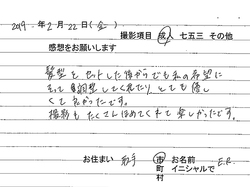 2019年2月22日(金)
撮影項目 成人 七五三 その他
感想をお願いします
髪型をセットした後からでも私の希望に
そって再調整してくれたり とても優し
くて良かったです。
撮影もたくさんほめてくれて楽しかったです。
お住まい 市町村 お名前 イニシャルで E.R.